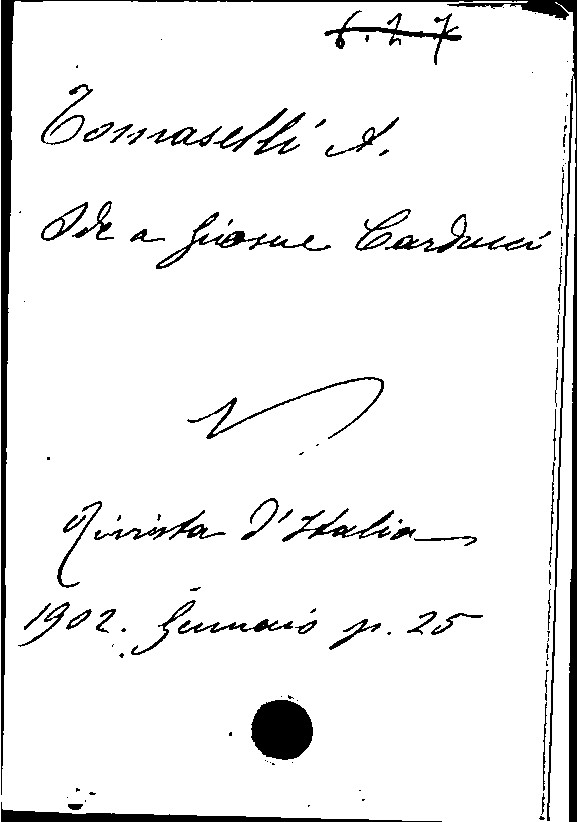 6.2.7
Tomaselli A.
Ode a Giosue Carducci
V
Rivista d'Italia
1902. Gennaio p. 25